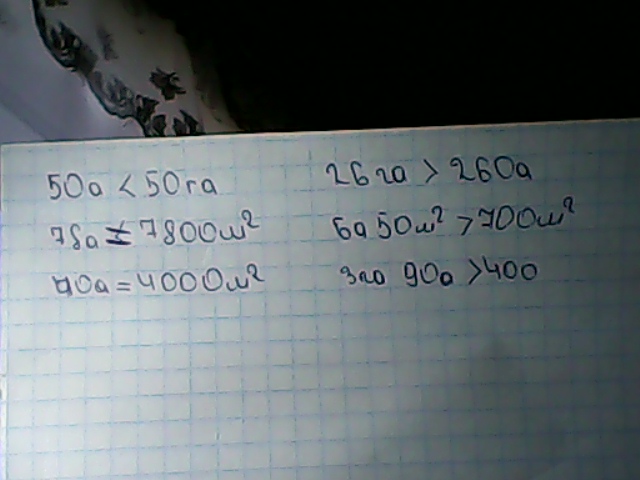 50а < 50га
78а = 7800м²
40а = 4000м²
26га > 260а
6а 50м² > 700м²
3га 90а > 400